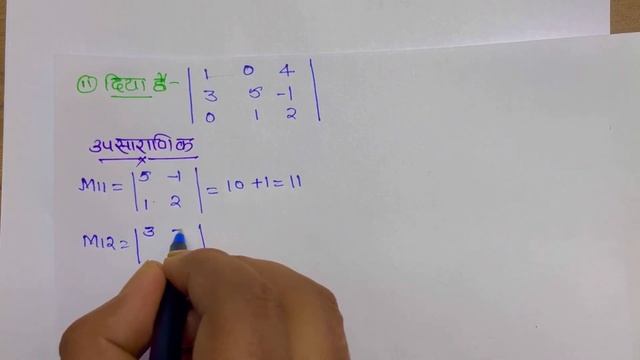 (11) दिया है- | 1 0 4 |
| 3 5 -1 |
| 0 1 2 |
उपसाराणिक
M11 = | 5 -1 | = 10 + 1 = 11
| 1 2 |
M12 = | 3 - |